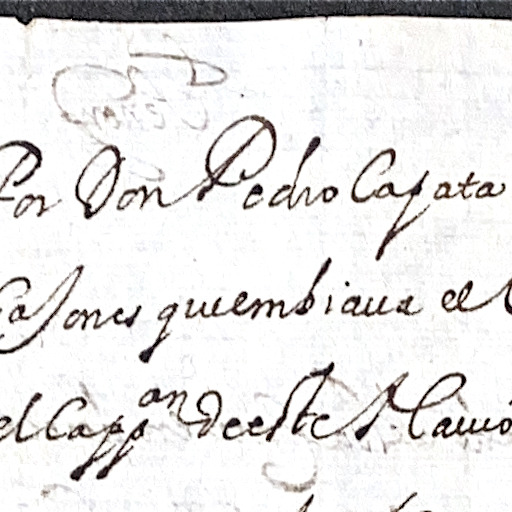 Por Don Pedro Capata
Casones que embiaua el
el Capp.an de este